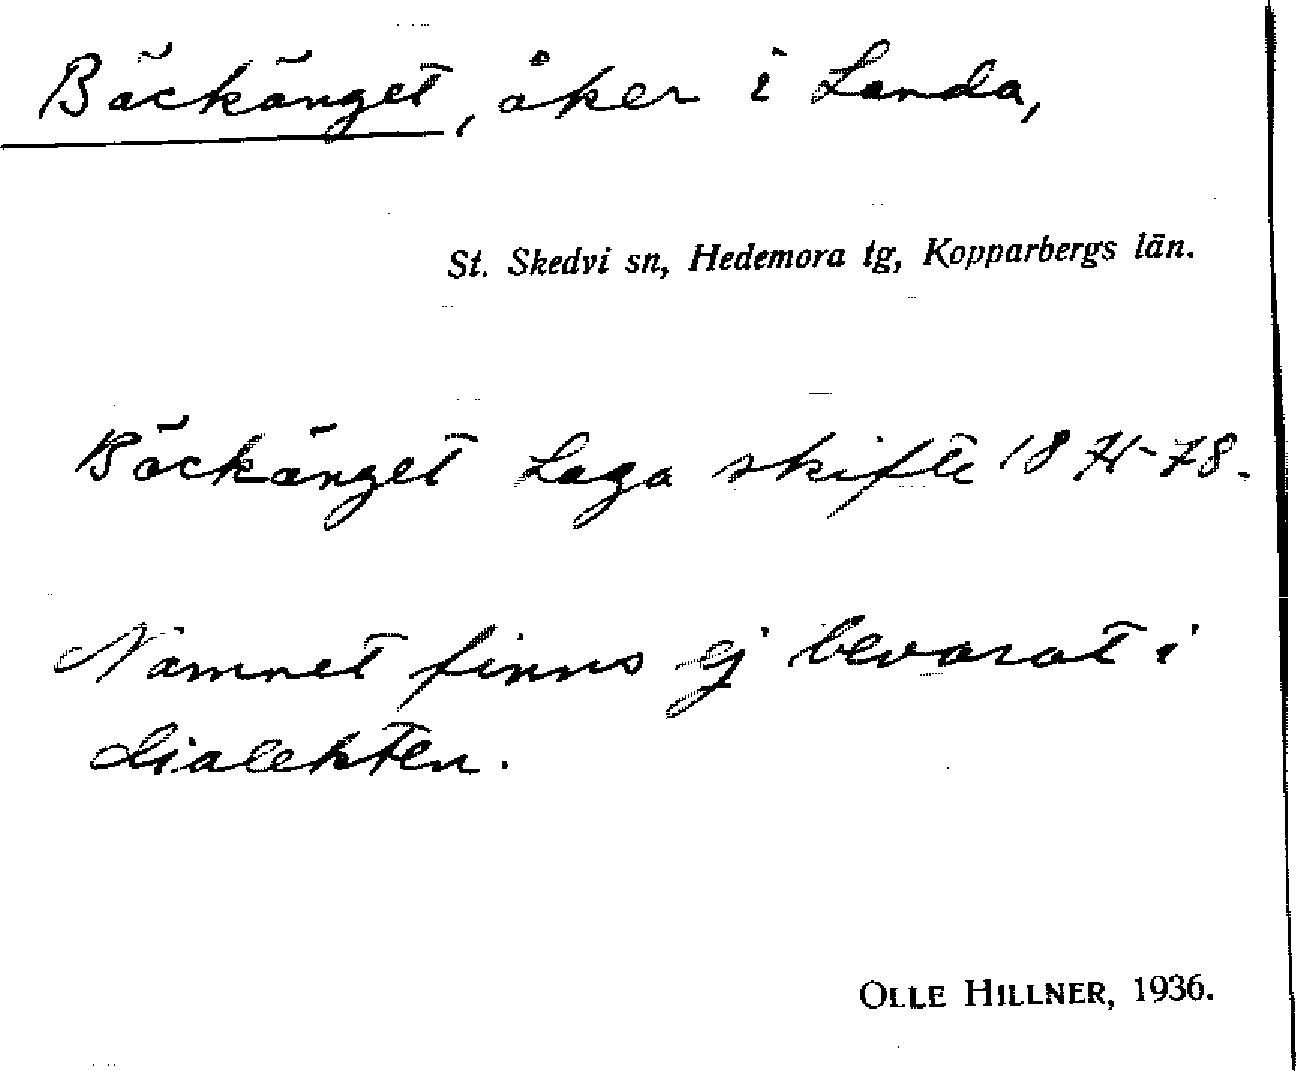 Bäckänget, åker i Landa,
St. Skedvi sn, Hedemora tg, Kopparbergs län.
Bäckänget Laga skifte 1871-78.
Namnet finns ej bevarat i
dialekten.
OLLE HILLNER, 1936.